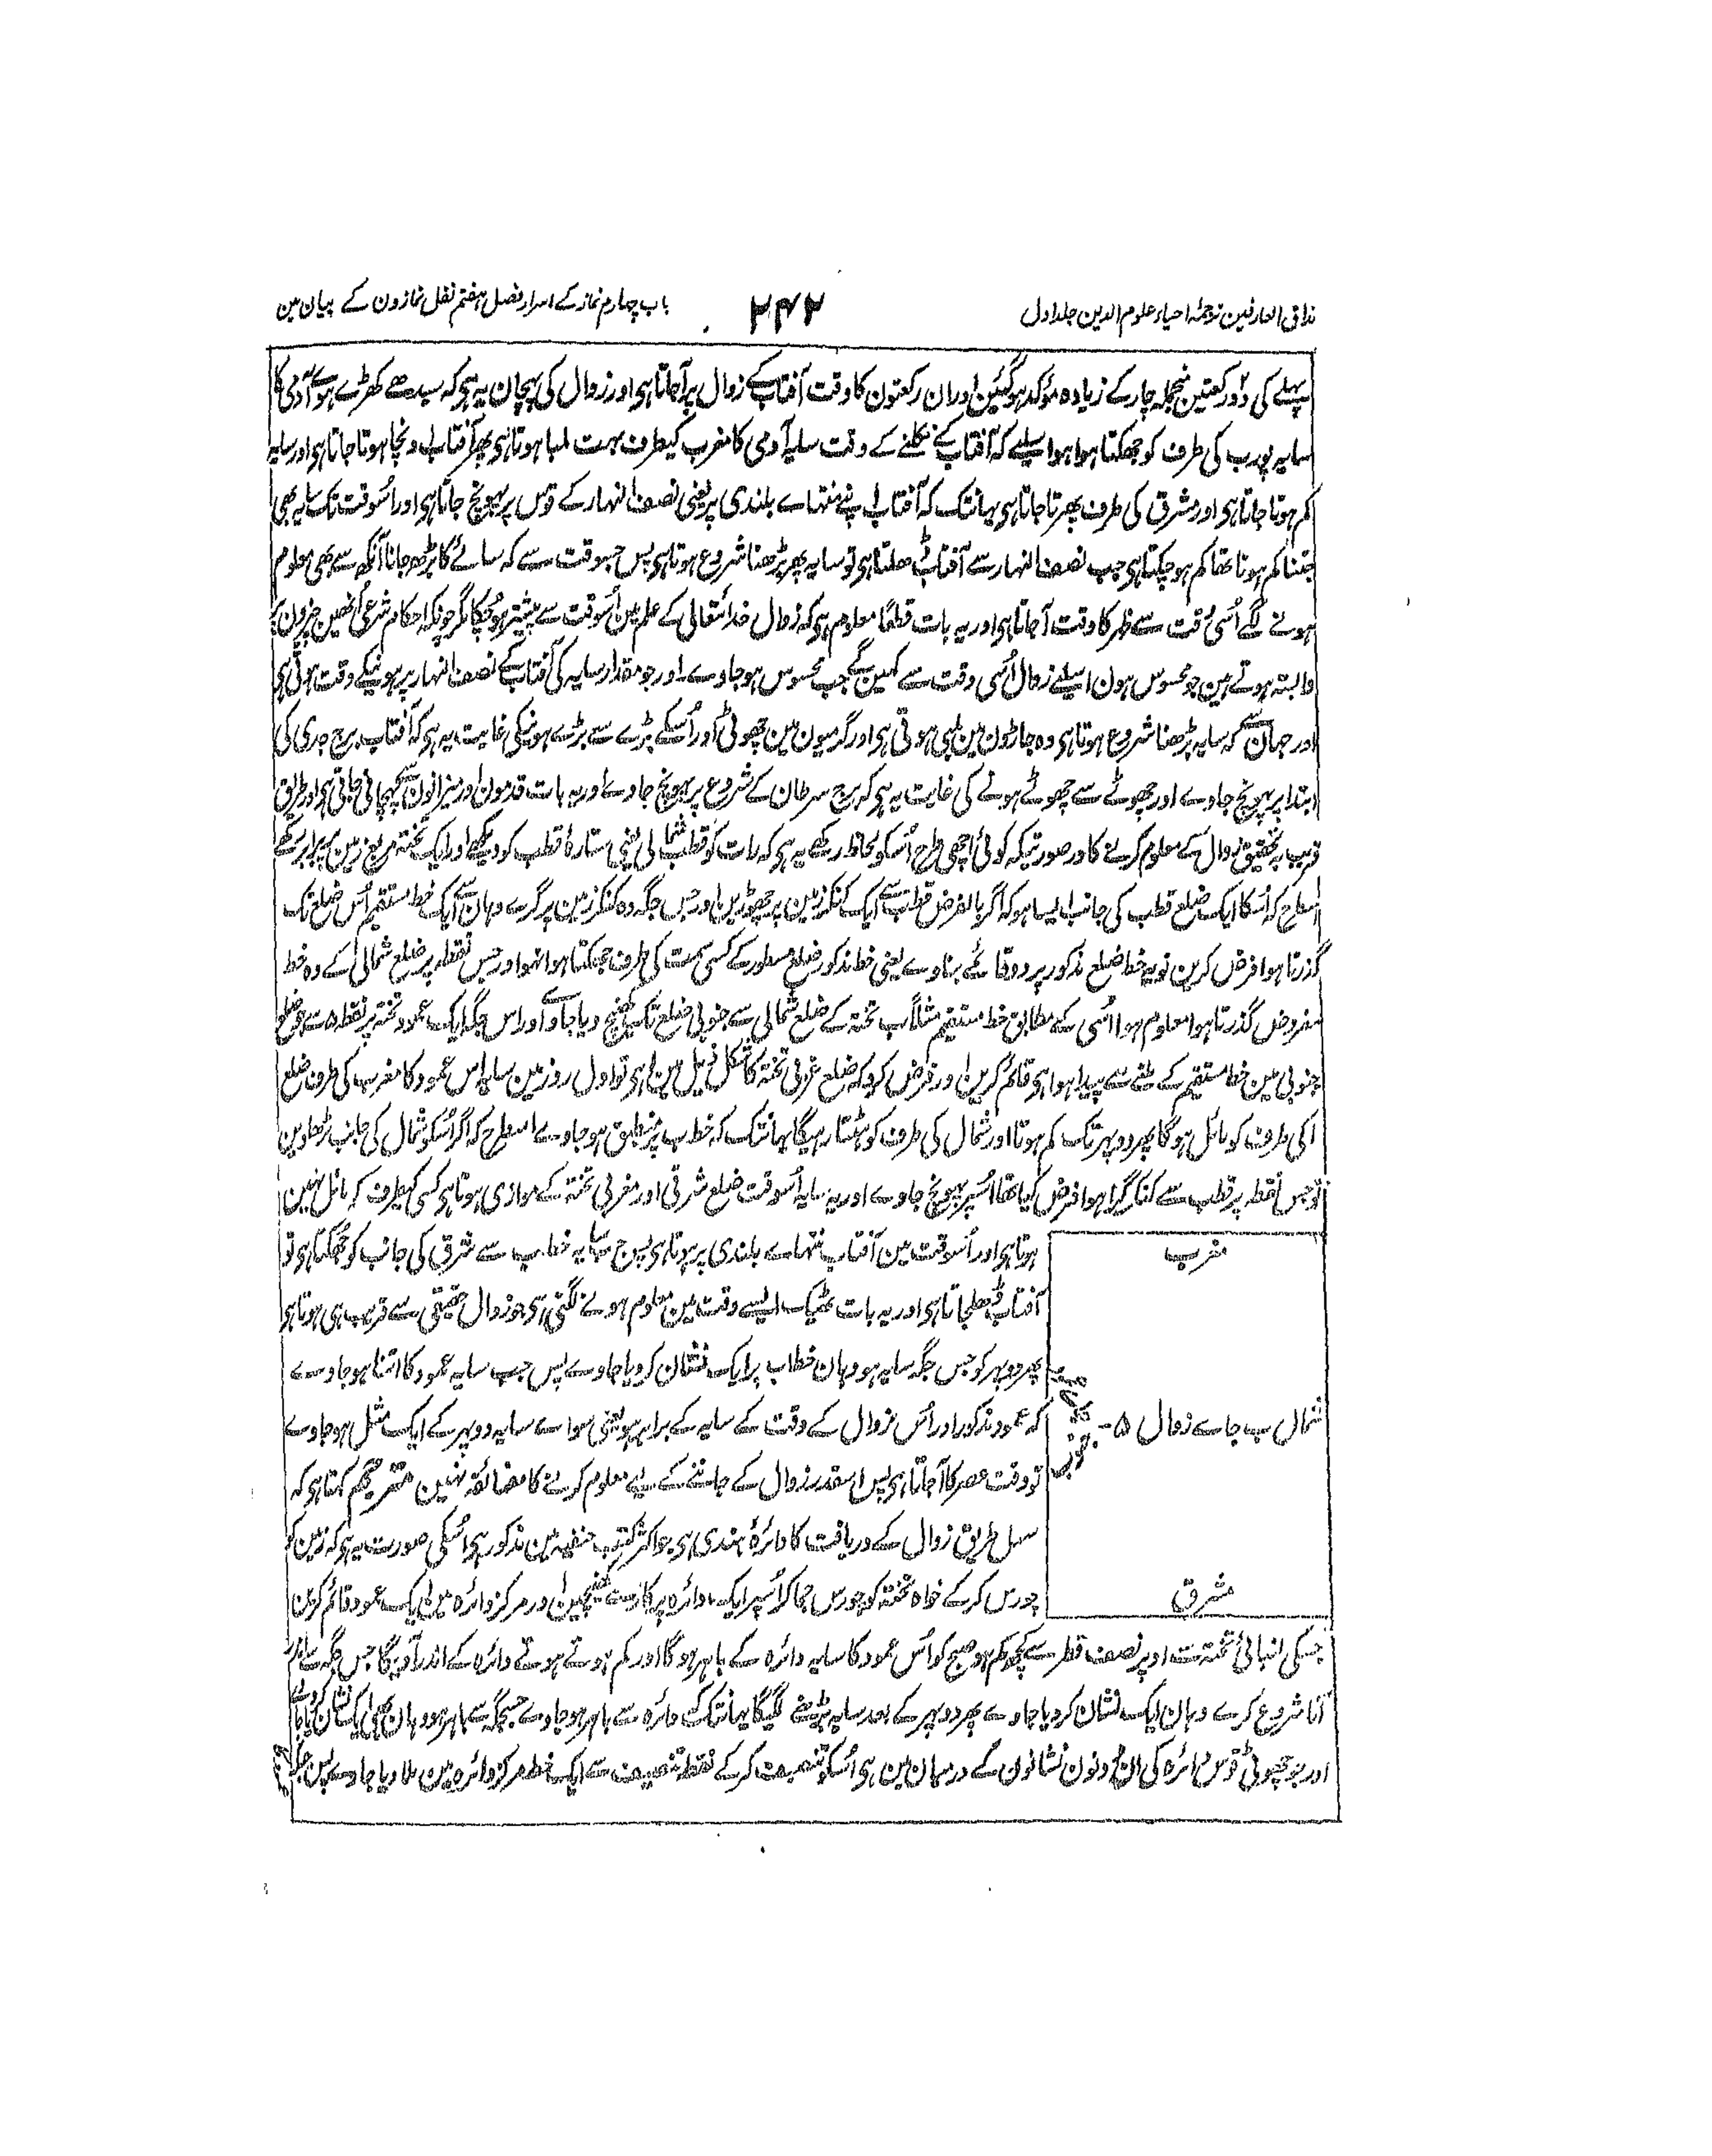 مذاق العارفین ترجمۂ احیاء علوم الدین جلد اول
۲۴۲
باب چہارم نماز کے اسرار فصل ہفتم نفل نمازون کے بیان مین
پہلے کی دو رکعتین منجملہ چار کے زیادہ مؤکد ہوگئین اور ان رکعتون کا وقت آفتاب کے زوال پر آجاتا ہی اور زوال کی پہچان یہ ہی کہ سیدھے کھڑے ہوے آدمی کا
سایہ پورب کی طرف کو جھکتا ہوا ہو اسلیے کہ آفتاب کے نکلنے کے وقت سایہ آدمی کا مغرب کیطرف بہت لمبا ہوتا ہی پھر آفتاب اونچا ہوتا جاتا ہی اور سایہ
کم ہوتا جاتا ہی اور مشرق کی طرف پھرتا جاتا ہی یہانتک کہ آفتاب اپنے منتہاے بلندی پر یعنی نصف النہار کے قوس پر پہونچ جاتا ہی اور اُسوقت تک سایہ بھی
جتنا کم ہونا تھا کم ہو چکتا ہی جب نصف النہار سے آفتاب ڈھلتا ہی تو سایہ پھر بڑھنا شروع ہوتا ہی پس جسوقت سے کہ سائے کا بڑھ جانا آنکھ سے بھی معلوم
ہونے لگے اُسی وقت سے ظہر کا وقت آجاتا ہی اور یہ بات قطعًا معلوم ہی کہ زوال خدا تعالی کے علم مین اُسوقت سے پیشتر ہو چکا مگر چونکہ احکام شرعی اُنھین چیزون پر
وابستہ ہوتے ہین جو محسوس ہون اسلیے زوال اُسی وقت سے کہین گے جب محسوس ہو جاوے اور جو مقدار سایہ کی آفتاب کے نصف النہار پر ہونیکے وقت ہوتی ہی
اور جہان سے کہ سایہ بڑھنا شروع ہوتا ہی وہ جاڑون مین لمبی ہوتی ہی اور گرمیون مین چھوٹی اور اُسکے بڑے سے بڑے ہونیکی غایت یہ ہی کہ آفتاب برج جدی کی
ابتدا پر پہونچ جاوے اور چھوٹے سے چھوٹے ہونے کی غایت یہ ہی کہ برج سرطان کے شروع پر پہونچ جاوے اور یہ بات قدمون اور میزانون سے پہچانی جاتی ہی اور طریق
قریب بہ تحقیق زوال کے معلوم کرنے کا درصورتیکہ کوئی اچھی طرح اُسکو لحاظ رکھے یہ ہی کہ رات کو قطب شمالی یعنی ستارۂ قطب کو دیکھے اور ایک تختہ مربع زمین پر برابر رکھے
اسطرح کہ اُسکا ایک ضلع قطب کی جانب ایسا ہو کہ اگر بالفرض قطب سے ایک کنکر زمین پر چھوڑین اور جس جگہ وہ کنکر زمین پر گرے وہان سے ایک خط مستقیم اُس ضلع تک
گذرتا ہوا فرض کرین تو یہ خط ضلع مذکور پر دو قائمے بناوے یعنی خط مذکور ضلع مسطور کے کسی سمت کی طرف جھکتا ہوا نہو اور جس نقطہ پر ضلع شمالی کے وہ خط
مفروض گذرتا ہوا معلوم ہوا اُسی کے مطابق خط مستقیم مثلًا ب تختہ کے ضلع شمالی سے جنوبی ضلع تک کھینچ دیا جاوے اور اس جگہ ایک عمود تختہ پر نقطہ ۵ سے جو ضلع
جنوبی مین خط مستقیم کے ملنے سے پیدا ہوا ہی قائم کرین اور فرض کرو کہ ضلع غربی تختہ کا شکل ذیل مین ا ہی تو اول روز مین سایہ اس عمود کا مغرب کی طرف ضلع
ا کی طرف کو مائل ہوگا پھر دوپہر تک کم ہوتا اور شمال کی طرف کو ہٹتا رہیگا یہانتک کہ خط ب پر منطبق ہو جاوے اسطرح کہ اگر اُسکو شمال کی جانب بڑھاوین
تو جس نقطہ پر قطب سے کنکر گرا ہوا فرض کیا تھا اُسپر پہونچ جاوے اور یہ سایہ اُسوقت ضلع شرقی اور مغربی تختہ کے موازی ہوتا ہی کسی کیطرف کہ مائل نہین
ہوتا ہی اور اُسوقت مین آفتاب منتہاے بلندی پر ہوتا ہی پس جب سایہ خط ب سے شرقی کی جانب کو جھکتا ہی تو
آفتاب ڈھلجاتا ہی اور یہ بات ٹھیک ایسے وقت مین معلوم ہونے لگتی ہی جو زوال حقیقی سے قریب ہی ہوتا ہی
پھر دوپہر کو جس جگہ سایہ ہو وہان خط ب پر ایک نشان کر دیا جاوے پس جب سایہ عمود کا اتنا ہو جاوے
کہ عمود مذکور اور اُس زوال کے وقت کے سایہ کے برابر ہو یعنی سواے سایہ دوپہر کے ایک مثل ہو جاوے
تو وقت عصر کا آجاتا ہی پس اسقدر زوال کے جاننے کے لیے معلوم کرنے کا مضائقہ نہین مترجم کہتا ہی کہ
سہل طریق زوال کے دریافت کا دائرۂ ہندی ہی جو اکثر کتب حنفیہ مین مذکور ہی اُسکی صورت یہ ہی کہ زمین کو
چورس کرکے خواہ تختہ کو چورس جما کر اُسپر ایک دائرہ پرکار سے کھینچین اور مرکز دائرہ مین ایک عمود قائم کرین
مغرب
شمال ب جاے زوال ۵ -
جنوب
مشرق
جسکی لنبائی تختہ سے اوپر نصف قطر سے کچھ کم ہو صبح کو اُس عمود کا سایہ دائرہ کے باہر ہوگا اور کم ہوتے ہوتے دائرہ کے اندر آویگا جس جگہ سے اندر
آنا شروع کرے وہان ایک نشان کر دیا جاوے پھر دوپہر کے بعد سایہ بڑھنے لگیگا یہانتک کہ دائرہ سے باہر ہو جاوے جس جگہ سے باہر ہو وہان بھی ایک نشان کر دیا جاے
اور جو چھوٹی قوس دائرہ کی ان دونون نشانون کے درمیان مین ہی اُسکو تنصیف کرکے نقطہ تنصیف سے ایک خط مرکز دائرہ مین ملا دیا جاوے پس جب